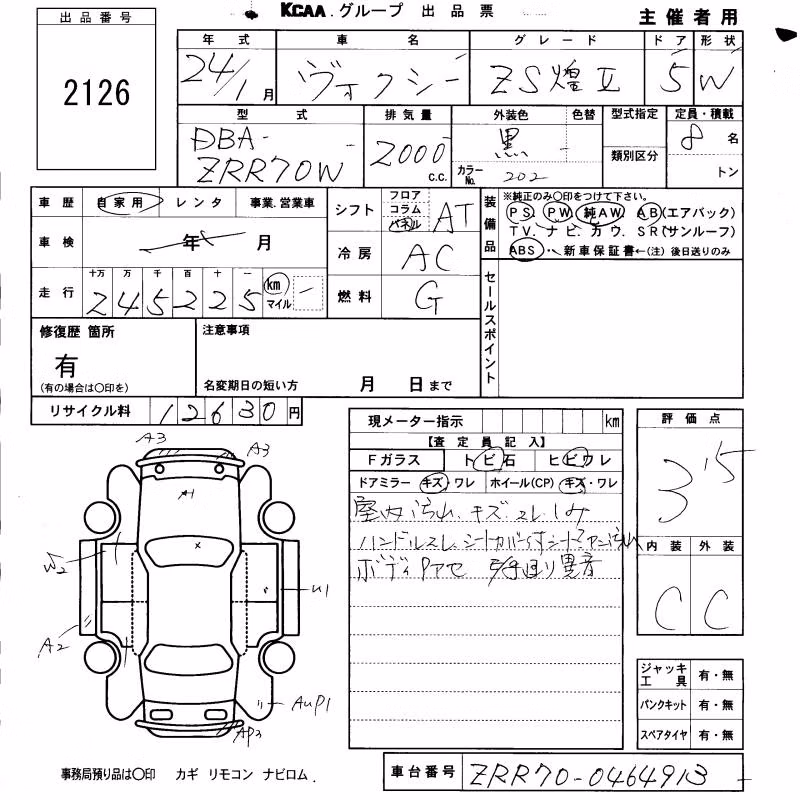 KCAA.グループ 出品票
主催者用
出品番号
2126
年式 車名 グレード ドア 形状
24/1月 ヴォクシー ZS煌Ⅱ 5 W
型式 排気量 外装色 色替 型式指定 定員・積載
DBA- - 2000 c.c. 黒 - 8名
ZRR70W カラーNo. 202 類別区分 トン
車歴 自家用 レンタ 事業.営業車
シフト フロア コラム パネル AT
装備品 ※純正のみ〇印をつけて下さい。
PS. PW 純AW. AB(エアバック)
TV.ナビ.カウ.SR(サンルーフ)
ABS ・新車保証書←(注)後日送りのみ
車検 年 月
冷房 AC
走行 十万 万 千 百 十 一
245225 km マイル -
燃料 G
セールスポイント
修復歴 箇所
有
(有の場合は〇印を)
注意事項
名変期日の短い方 月 日まで
リサイクル料 12630円
現メーター指示 km
【査定員記入】
Fガラス トビ石 ヒビワレ
ドアミラー キズ・ワレ ホイール(CP) キズ・ワレ
室内汚れ.キズ.スレ.しみ
ハンドルスレ.
ボディ
異音
評価点
3
内装 外装
C C
A3
A3
A1
x
W2
U1
A2
AUP1
AP3
ジャッキ工具 有・無
パンクキット 有・無
スペアタイヤ 有・無
事務局預り品は〇印 カギ リモコン ナビロム.
車台番号 ZRR70-0464913